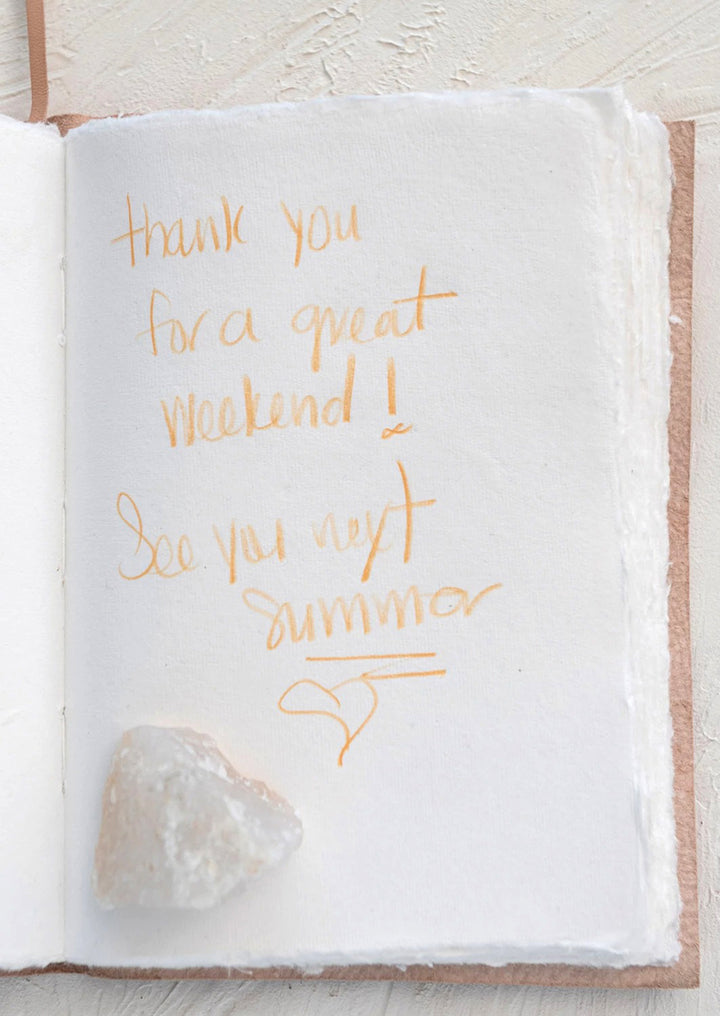 thank you
for a great
weekend!
See you next
summer